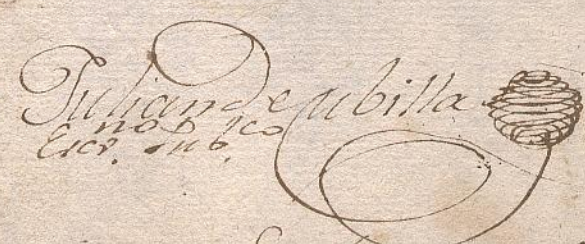 Julian De Cubilla
Escr.no Pub.co